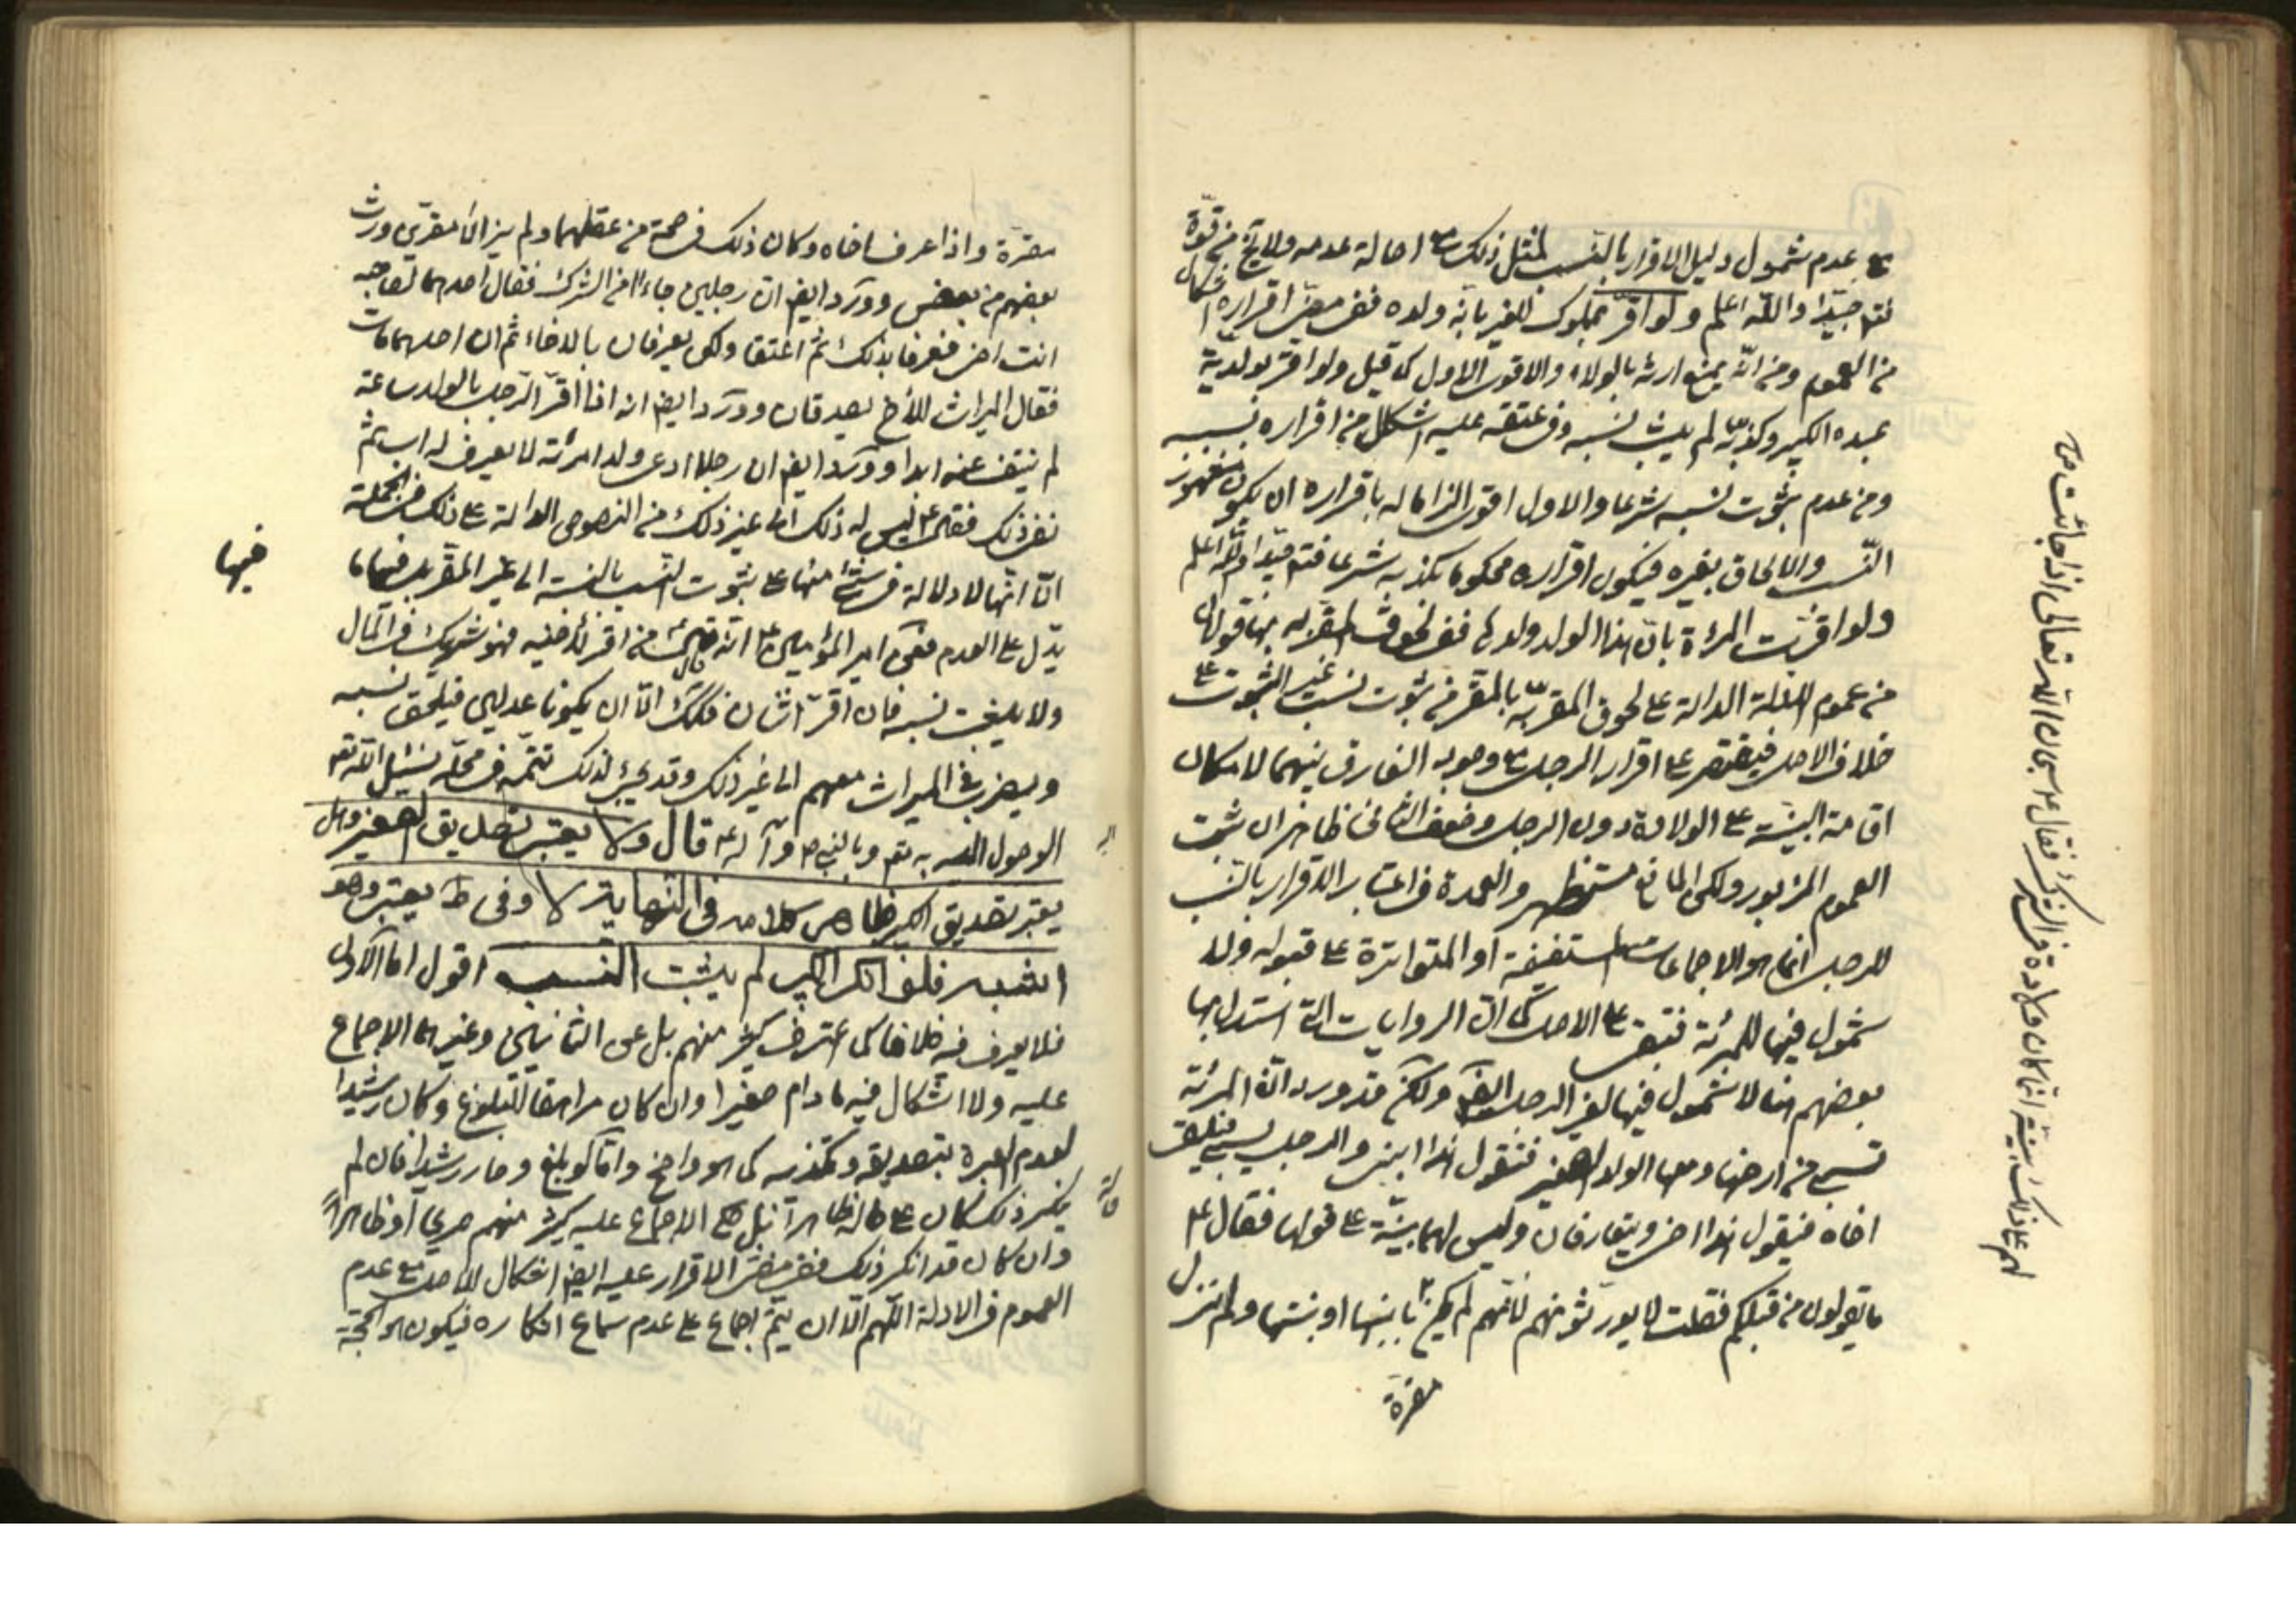 على عدم شمول دليل الاقرار بالنسب لمثل ذلك مع اصالة عدمه ولا يخ من قوة
فتم جيّدا واللّه اعلم ولو اقرّ بمملوك للغير بانّه ولده ففى مضىّ اقراره اشكال
من العموم ومن انّه يمنع ارثه بالولاء والاقوى الاول كما قيل ولو اقر بولدية
عبده الكبير وكذّبه لم يثبت نسبه وفى عتقه عليه اشكال من اقراره بنسبه
ومن عدم ثبوت نسبه شرعا والاول اقوى الزاما له باقراره الا ان يكون مشهور
النّسب والالحاق بغيره فيكون اقراره محكوما بكذبه شرعا فتم جيّدا واللّه اعلم
ولو اقرّت المرءة بانّ هذا الولد ولدها ففى لحوق المقرّ به بها قولان
من عموم الادلة الدالة على لحوق المقرّ به بالمقر من ثبوت نسب غير الثبوت على
خلاف الاصل فيقتصر على اقرار الرجل مع وجود الفارق بينهما لامكان
اقامة البيّنة على الولادة دون الرجل وضعف الثانى ظاهر ان ثبت
العموم المزبور ولكن المانع مستظهر والعمدة فى اعتبار الاقرار بالنّسب
للرجل انما هو الاجماعات المستفيضة او المتواترة على قبوله ولا
شمول فيها للمرئة فتبقى على الاصل كما انّ الروايات التى استدل بها
بعضهم هنا لا شمول فيها لغير الرجل ايضا ولكن قد ورد انّ المرئة
تسبى من ارضها ومعها الولد الصغير فتقول هذا ابنى والرجل يسبى فيلقى
اخاه فيقول هذا اخى ويتعارفان وليس لهما بيّنة على قولهما فقال ع
ما يقولون من قبلكم فقلت لا يورثونهم لانّهم لم يكن بابنها او بنتها ولم تزل
مقرة
لهم على ذلك بيّنة انما كان ولادة فى الشرك فقال ع سبحان اللّه تعالى اذا جائت من
مقرّة واذا عرف اخاه وكان ذلك فى صحة من عقلهما ولم يزالا مقرّين ورث
بعضهم من بعض وورد ايضا ان رجلين جاءا من الشرك فقال احدهما لصاحبه
انت اخى فعرفا بذلك ثم اعتقا ولكن يعرفان بالاخاء ثم ان احدهما مات
فقال الميراث للأخ يصدقان وورد ايضا انه اذا اقرّ الرجل بالولد ساعة
لم ينتف عنه ابدا وورد ايضا ان رجلا ادعى ولد امرئة لا يعرف له اب ثم
نفى ذلك فقال ع ليس له ذلك الى غير ذلك من النصوص الدالة على ذلك فى الجملة
الّا انّها لا دلالة فى شئ منها على ثبوت النسب بالنسبة الى غير المقر بل فيها ما
فيها
يدّل على العدم فعن امير المؤمنين ع انه قال من اقر لأخيه فهو شريك فى المال
ولا يثبت نسبه فان اقرّ اثنان فكذلك الّا ان يكونا عدلين فيلحق نسبه
ويضرب فى الميراث معهم الى غير ذلك وقد يجئ لذلك تتمة فى محلّه نسئل اللّه تع
الوصول اليه به تع وبالنبى ص وآله ع قال ولا يعتبر تصديق الصغير وهل
يعتبر تصديق الكبير ظاهر كلامه فى النهاية لا وفى ط يعتبر وهو
اشبه فلو انكر الكبير لم يثبت النسب اقول اما الاول
فلا يعرف فيه خلافا كما اعترف كثير منهم بل عن الثانيين وغيرهما الاجماع
عليه ولا اشكال فيه ما دام صغيرا وان كان مراهقا للبلوغ وكان رشيدا
لعدم العبرة بتصديقه وتكذيبه كما هو واضح وامّا لو بلغ وصار رشيدا فان لم
ينكر ذلك كان على حاله ظاهرا بل حكى الاجماع عليه كثير منهم صريحا او ظاهرا
وان كان قد انكر ذلك ففى مضىّ الاقرار عليه ايضا اشكال للاصل مع عدم
العموم فى الادلة اللّهم الّا ان يتمّ اجماع على عدم سماع انكاره فيكون هو الحجة